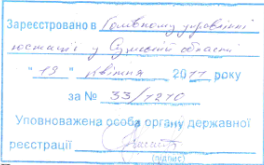 Зареєстровано в Головному управлінні
юстиції у Сумській області
"19" квітня 2011 року
за № 33/1210
Уповноважена особа органу державної
реєстрації
(підпис)